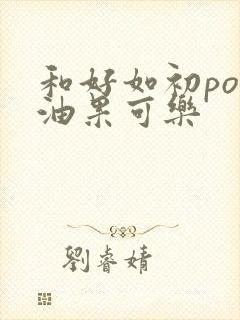 和好如初po
油果可樂
劉睿婧